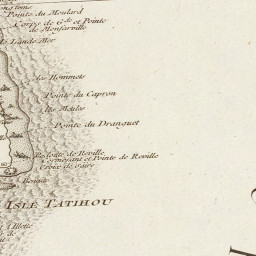 Pointe du Moulard
Corps de G.de et Pointe
de Monfarville
les Landes Mor
les Hommets
Pointe du Capron
les Moulos
Pointe du Dranguet
Redoute de Reville
et Pointe de Reville
Croix de
ISLE TATIHOU